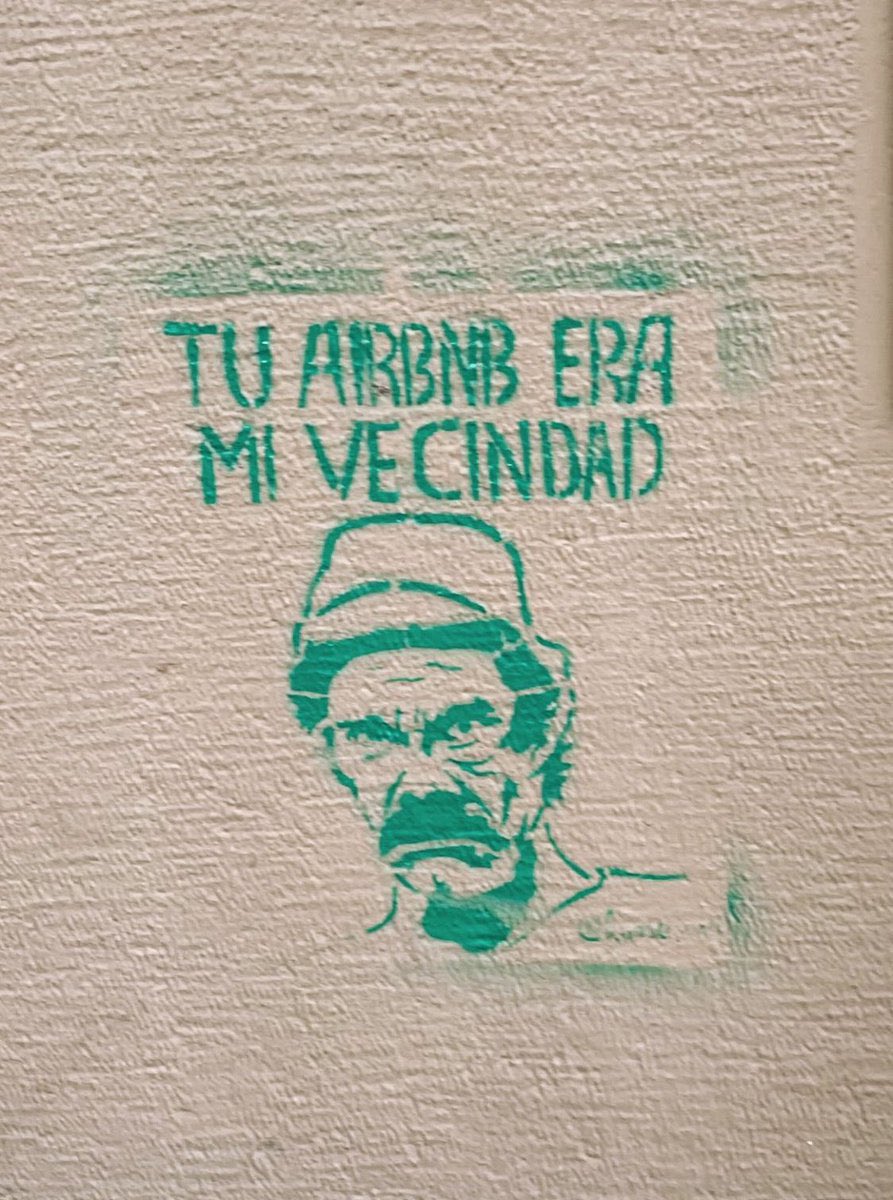 TU AIRBNB ERA
MI VECINDAD